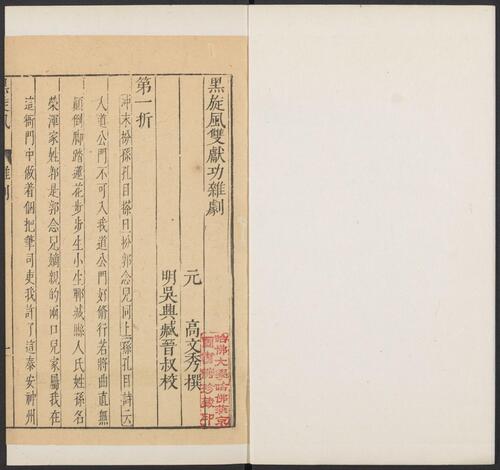 黑旋風雙獻功雜劇
元 高文秀撰
明吳興臧晉叔校
哈佛大學哈佛燕京
圖書館珍藏印
第一折
冲末扮孫孔目搽旦扮郭念兒同上孫孔目詩云
人道公門不可入我道公門好修行若將曲直無
顛倒脚踏蓮花步步生小生鄆城縣人氏姓孫名
榮渾家姓郭是郭念兒嫡親的兩口兒家屬我在
這衙門中做着個把筆司吏我許了這泰安神州
黑旋風 雜劇 一